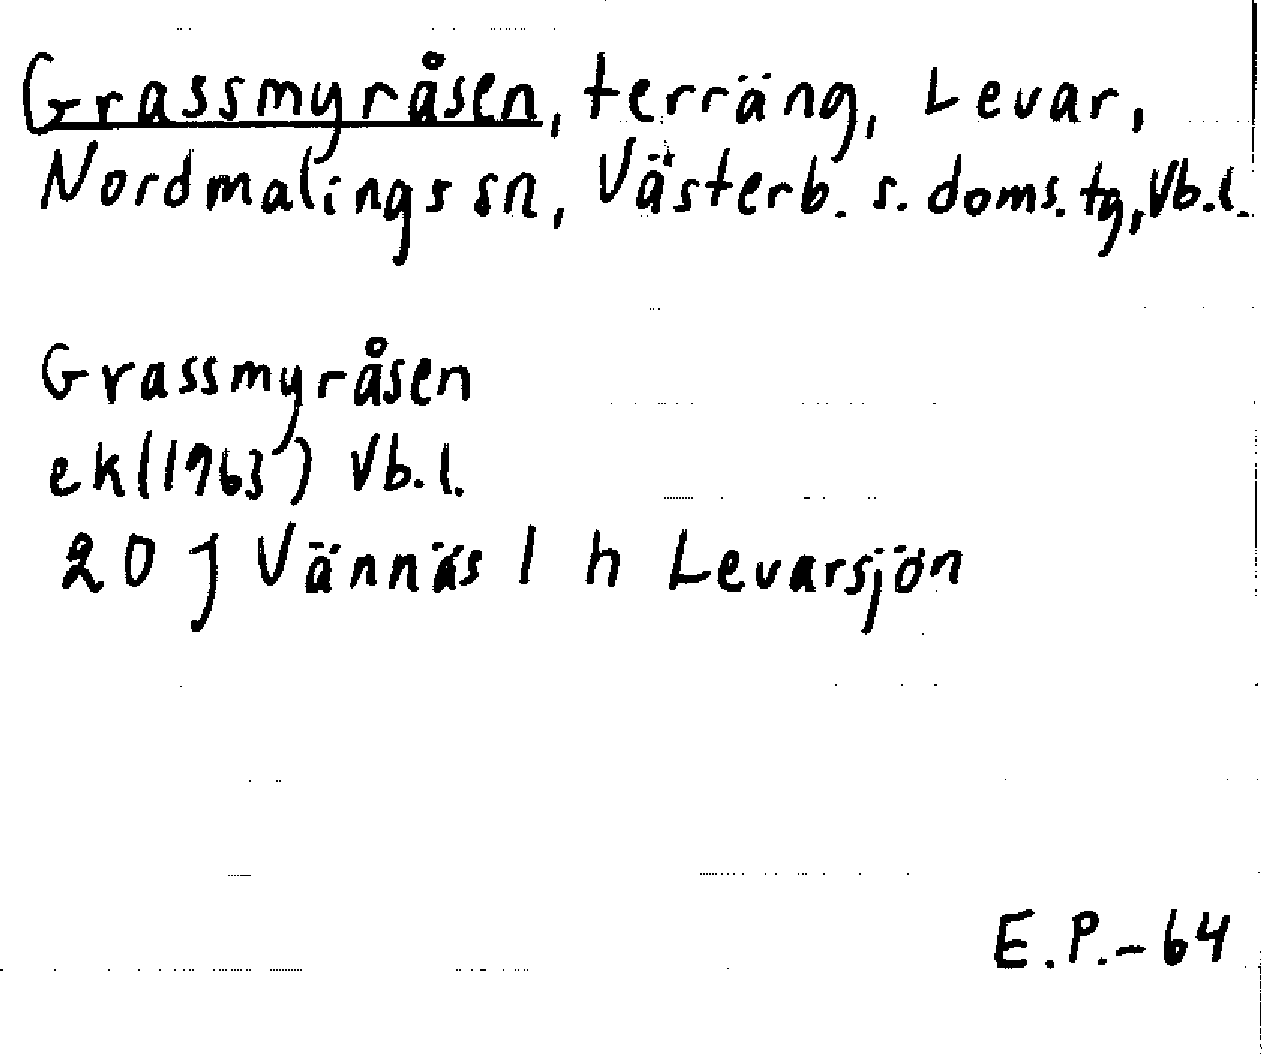 Grassmyråsen, terräng, Levar,
Nordmalings sn, Västerb. s. doms. tg, Vb.l.
Grassmyråsen
ek (1963) Vb.l.
20 J Vännäs 1 h Levarsjön
E.P.-64